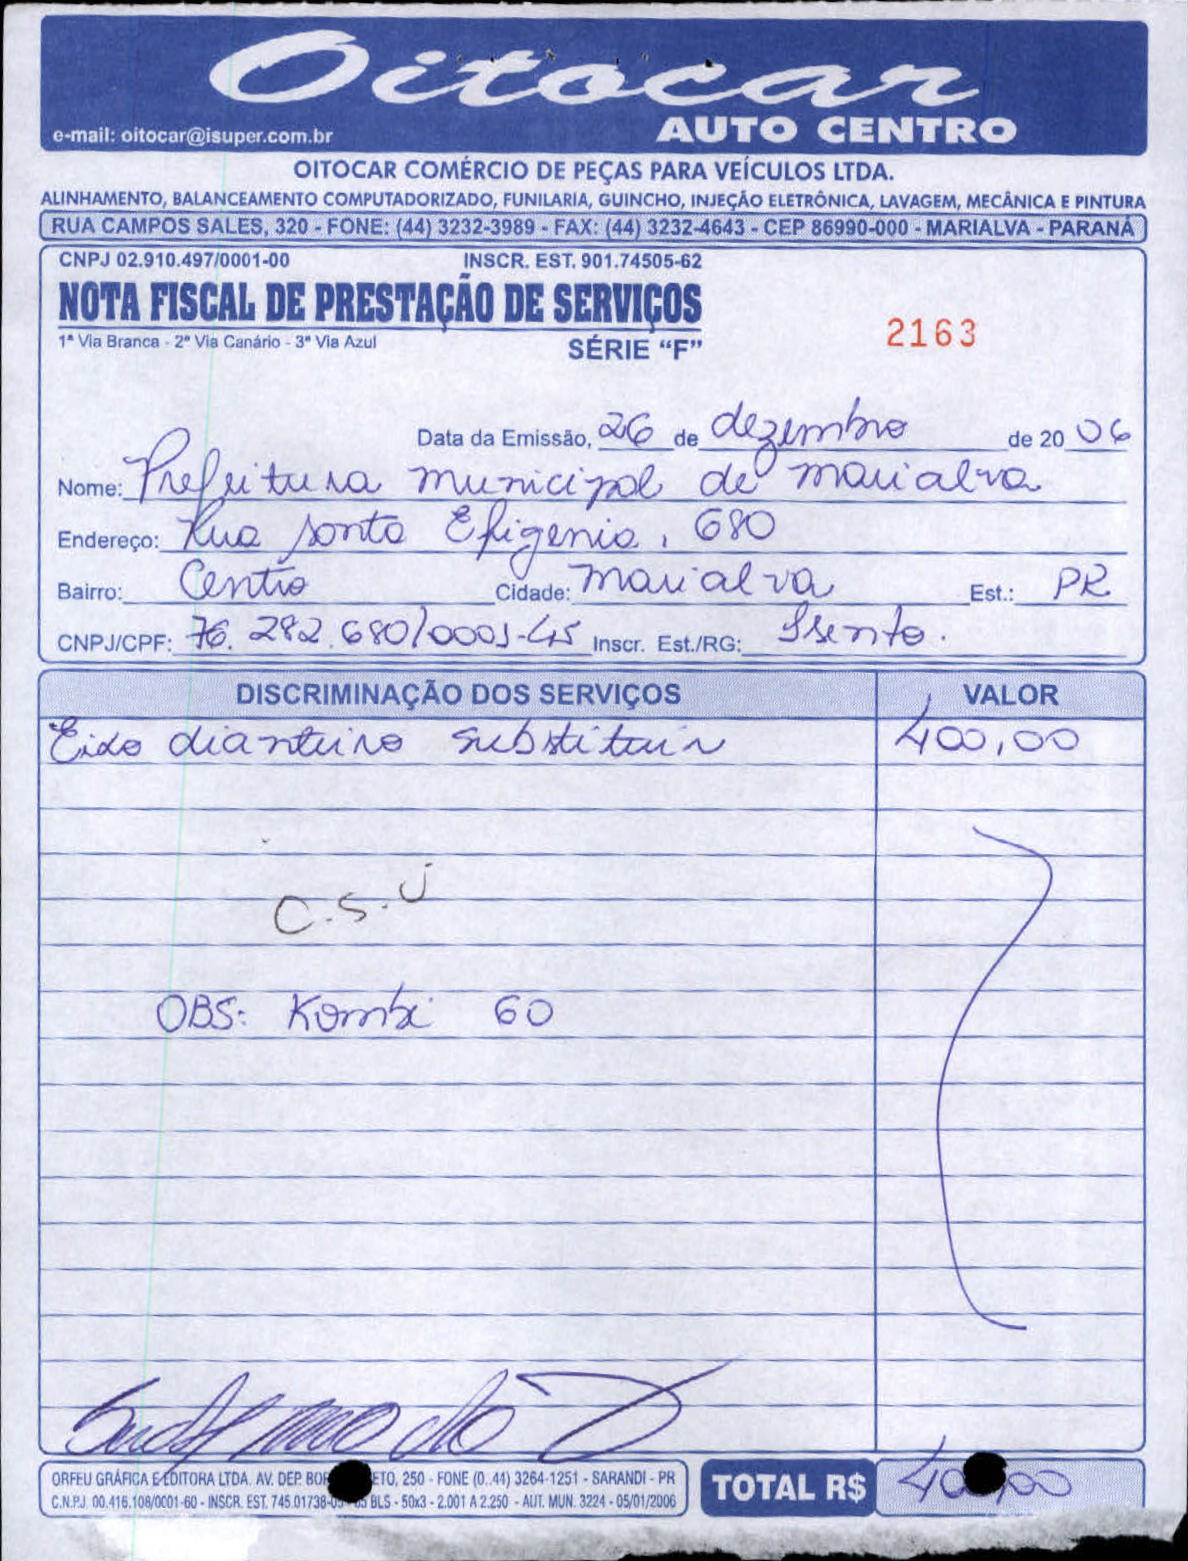 Oitocar
AUTO CENTRO
e-mail: oitocar@isuper.com.br
OITOCAR COMÉRCIO DE PEÇAS PARA VEÍCULOS LTDA.
ALINHAMENTO, BALANCEAMENTO COMPUTADORIZADO, FUNILARIA, GUINCHO, INJEÇÃO ELETRÔNICA, LAVAGEM, MECÂNICA E PINTURA
RUA CAMPOS SALES, 320 - FONE: (44) 3232-3989 - FAX: (44) 3232-4643 - CEP 86990-000 - MARIALVA - PARANÁ
CNPJ 02.910.497/0001-00 INSCR. EST. 901.74505-62
NOTA FISCAL DE PRESTAÇÃO DE SERVIÇOS
1ª Via Branca - 2ª Via Canário - 3ª Via Azul SÉRIE "F"
2163
Data da Emissão, 26 de dezembro de 20 06
Nome: Prefeitura municipal de marialva
Endereço: Rua santa Efigenia, 680
Bairro: Centro Cidade: marialva Est.: PR
CNPJ/CPF: 76.282.680/0001-45 Inscr. Est./RG: Isento.
DISCRIMINAÇÃO DOS SERVIÇOS VALOR
Eixo dianteiro substituir 400,00
C.S.U
OBS: Kombi 60
ORFEU GRÁFICA E EDITORA LTDA. AV. DEP. ETO, 250 - FONE (0..44) 3264-1251 - SARANDI - PR
C.N.P.J. 00.416.108/0001-60 - INSCR. EST. BLS - 50x3 - 2.001 A 2.250 - AUT. MUN. 3224 - 05/01/2006
TOTAL R$ 400,00